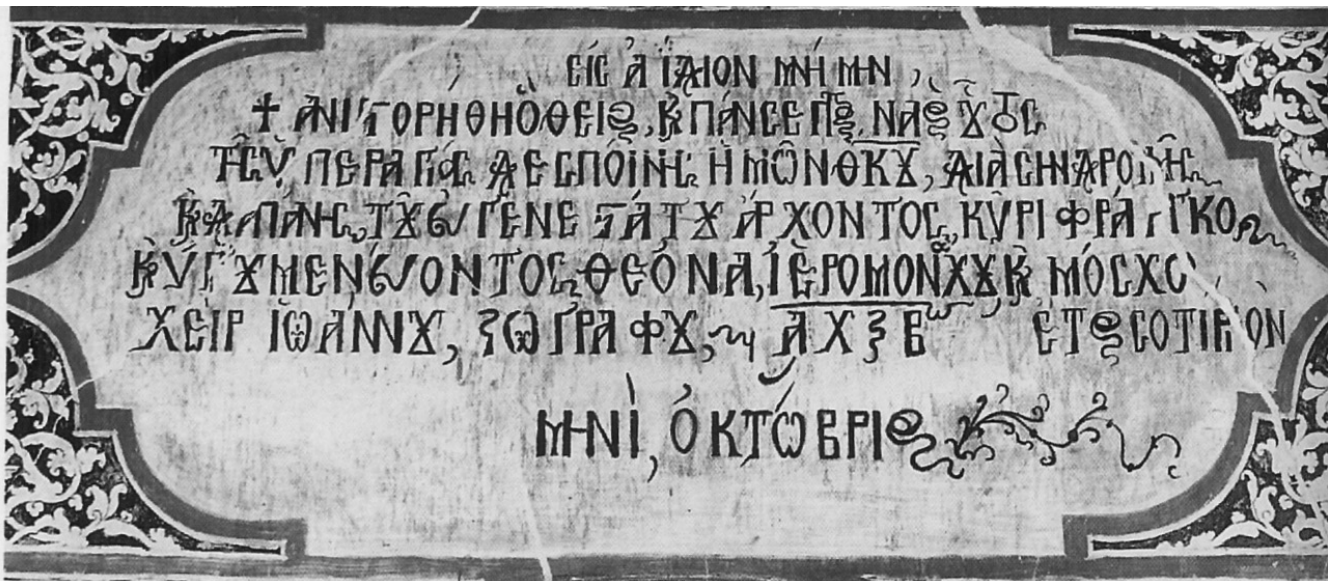 εἰς ἀΐδιον μνήμην,
✝ ἀνιστορήθη ὁ θείος, κ πάνσεπτος, ναὸς οὗτος
τῆς ὑπεραγίας δεσπόινης ἡμῶν θκου, διὰ σηνδρομῆς
κ δαπάνης, τοῦ ευγενεστάτου άρχοντος, κυρι φράγγκου
κ ὑγουμενέυοντος θεόνα, ἱερομονάχου κ μόσχου
χεὶρ ἰωάννου, ζωγράφου, αχξβω ετος σοτιριον
μηνὶ, ὀκτώβριος